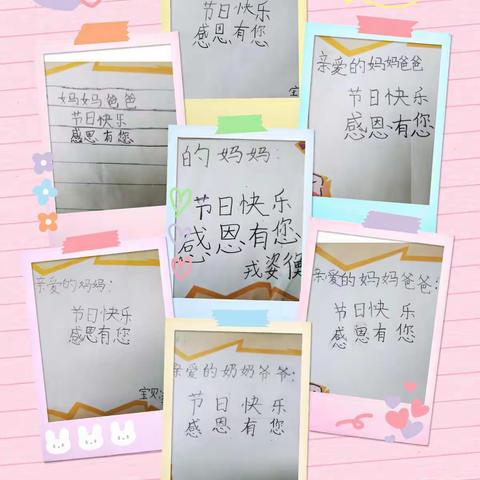 节日快乐
感恩有您
宝
妈妈爸爸
节日快乐
感恩有您
亲爱的妈妈爸爸
节日快乐
感恩有您
的妈妈:
节日快乐
感恩有您
戎姿衡
亲爱的妈妈:
节日快乐
感恩有您
宝贝
亲爱的妈妈爸爸:
节日快乐
感恩有您
亲爱的奶奶爷爷:
节日快乐
感恩有您